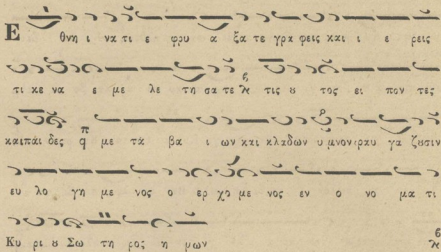 Ε θνη ι να τι ε φρυ α ξα τε γρα φεις και ι ε ρεις
τι κε να ε με λε τη σα τε τις ȣ τος ει πον τες
και παι δες με τα βα ι ων και κλα δων υ μνον κραυ γα ζȣσιν
ευ λο γη με νος ο ερ χο με νος εν ο νο μα τι
Κυ ρι ȣ Σω τη ρος η μων